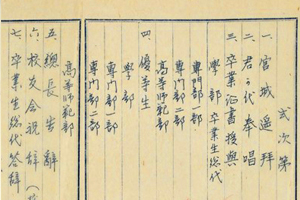 式次第
一、宮城遥拝
二、君が代奉唱
三、卒業證書授與
学部 卒業生総代
専門部一部
専門部二部
高等師範部
四、優等生
学部
専門部一部
専門部二部
高等師範部
五、總長告辞
六、校友会祝辞
七、卒業生総代答辞